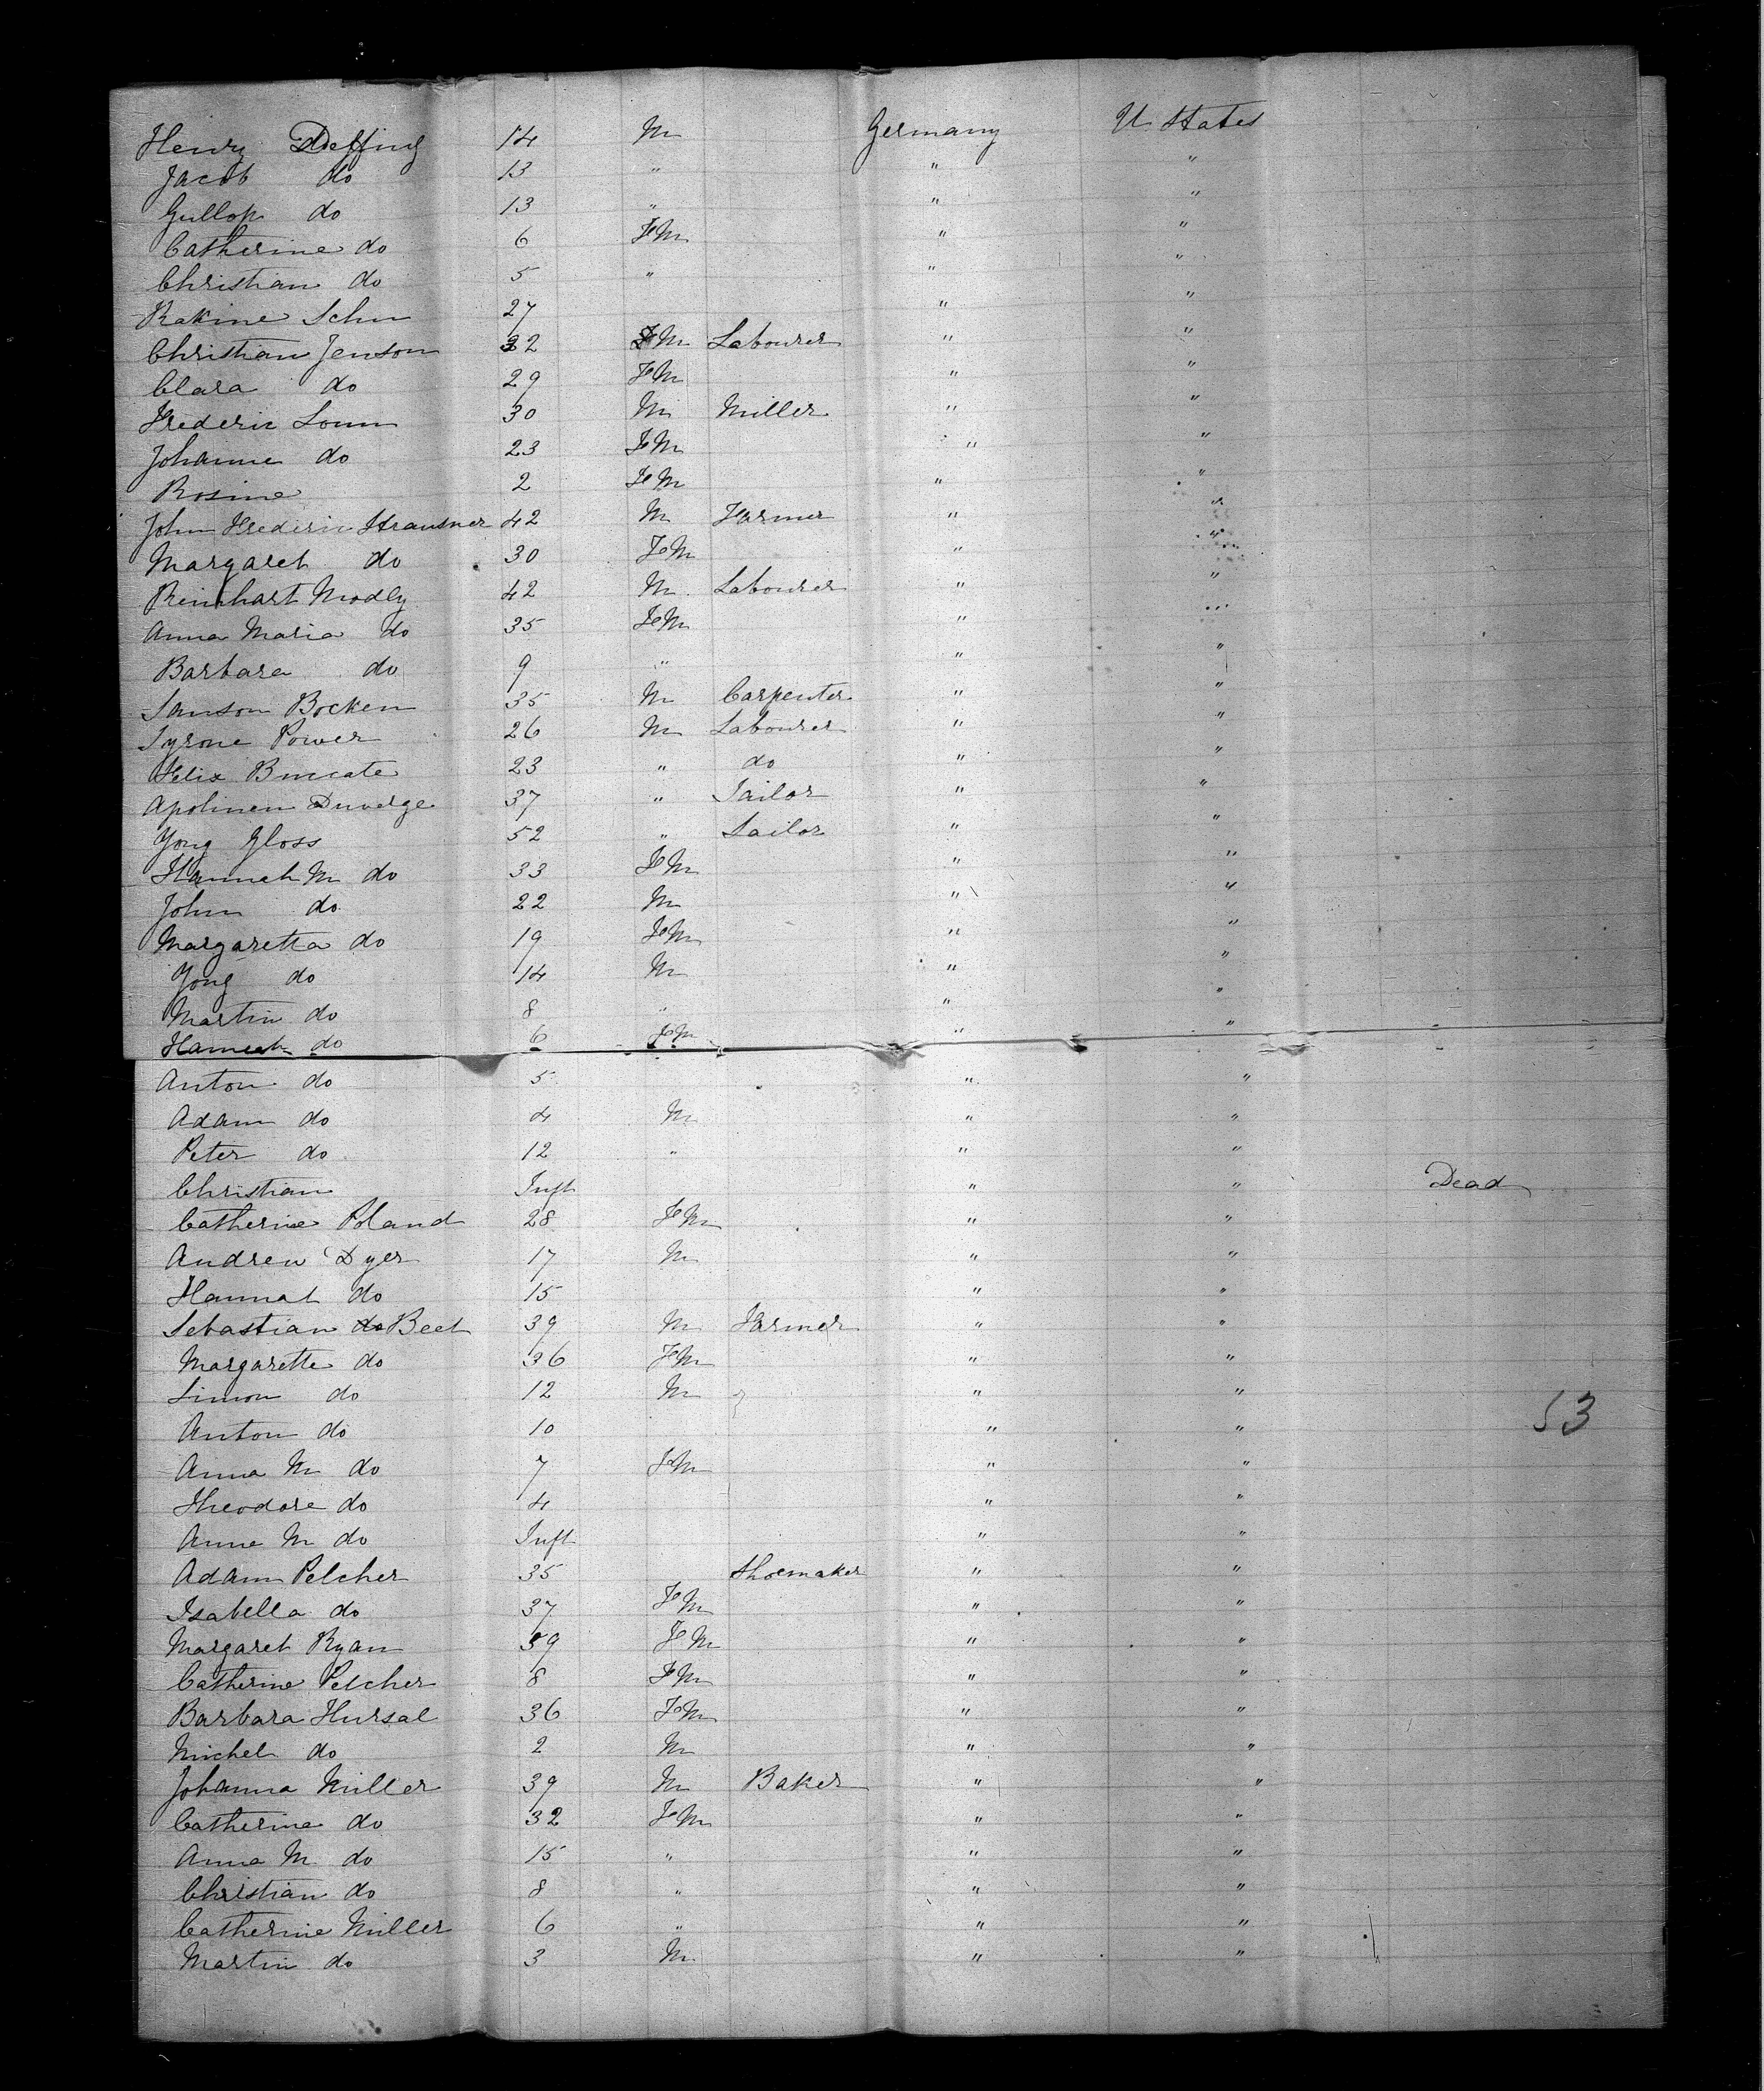 Henry Deffing 14 M Germany U States
Jacob do 13 " " "
Gullop do 13 " " "
Catherine do 6 FM " "
Christian do 5 " " "
Rakine Schu 27 " "
Christian Jenson 32 M Labourer " "
Clara do 29 FM " "
Frederic Lonn 30 M Miller " "
Johanne do 23 FM " "
Rosine 2 FM " "
John Frederic Strausner 42 M Farmer " "
Margaret do 30 FM " "
Reinhart Modly 42 M Labourer " "
Anna Maria do 35 FM " "
Barbara do 9 " " "
Sanson Bocken 35 M Carpenter " "
Tyrone Power 26 M Labourer " "
Felix 23 " do " "
Apolinen Duvelge 37 " Tailor " "
Yong Gloss 52 " Sailor " "
Hannah M do 33 FM " "
John do 22 M " "
Margaretta do 19 FM " "
Yong do 14 M " "
Martin do 8 " " "
Hannah do 6 FM " "
Anton do 5 " "
Adam do 4 M " "
Peter do 12 " " "
Christian Inft " " Dead
Catherine Poland 28 FM " "
Andrew Dyer 17 M " "
Hannah do 15 " "
Sebastian do Beet 39 M Farmer " "
Margarette do 36 FM " "
Simon do 12 M " "
Anton do 10 " " 53
Anna M do 7 FM " "
Theodore do 4 " "
Anne M do Inft " "
Adam Pelcher 35 Shoemaker " "
Isabella do 37 FM " "
Margaret Ryan 59 FM " "
Catherine Pelcher 8 FM " "
Barbara Hursal 36 FM " "
Michel do 2 M " "
Johanna Miller 39 M Baker " "
Catherine do 32 FM " "
Anna M do 15 " " "
Christian do 8 " " "
Catherine Miller 6 " " "
Martin do 3 M " "